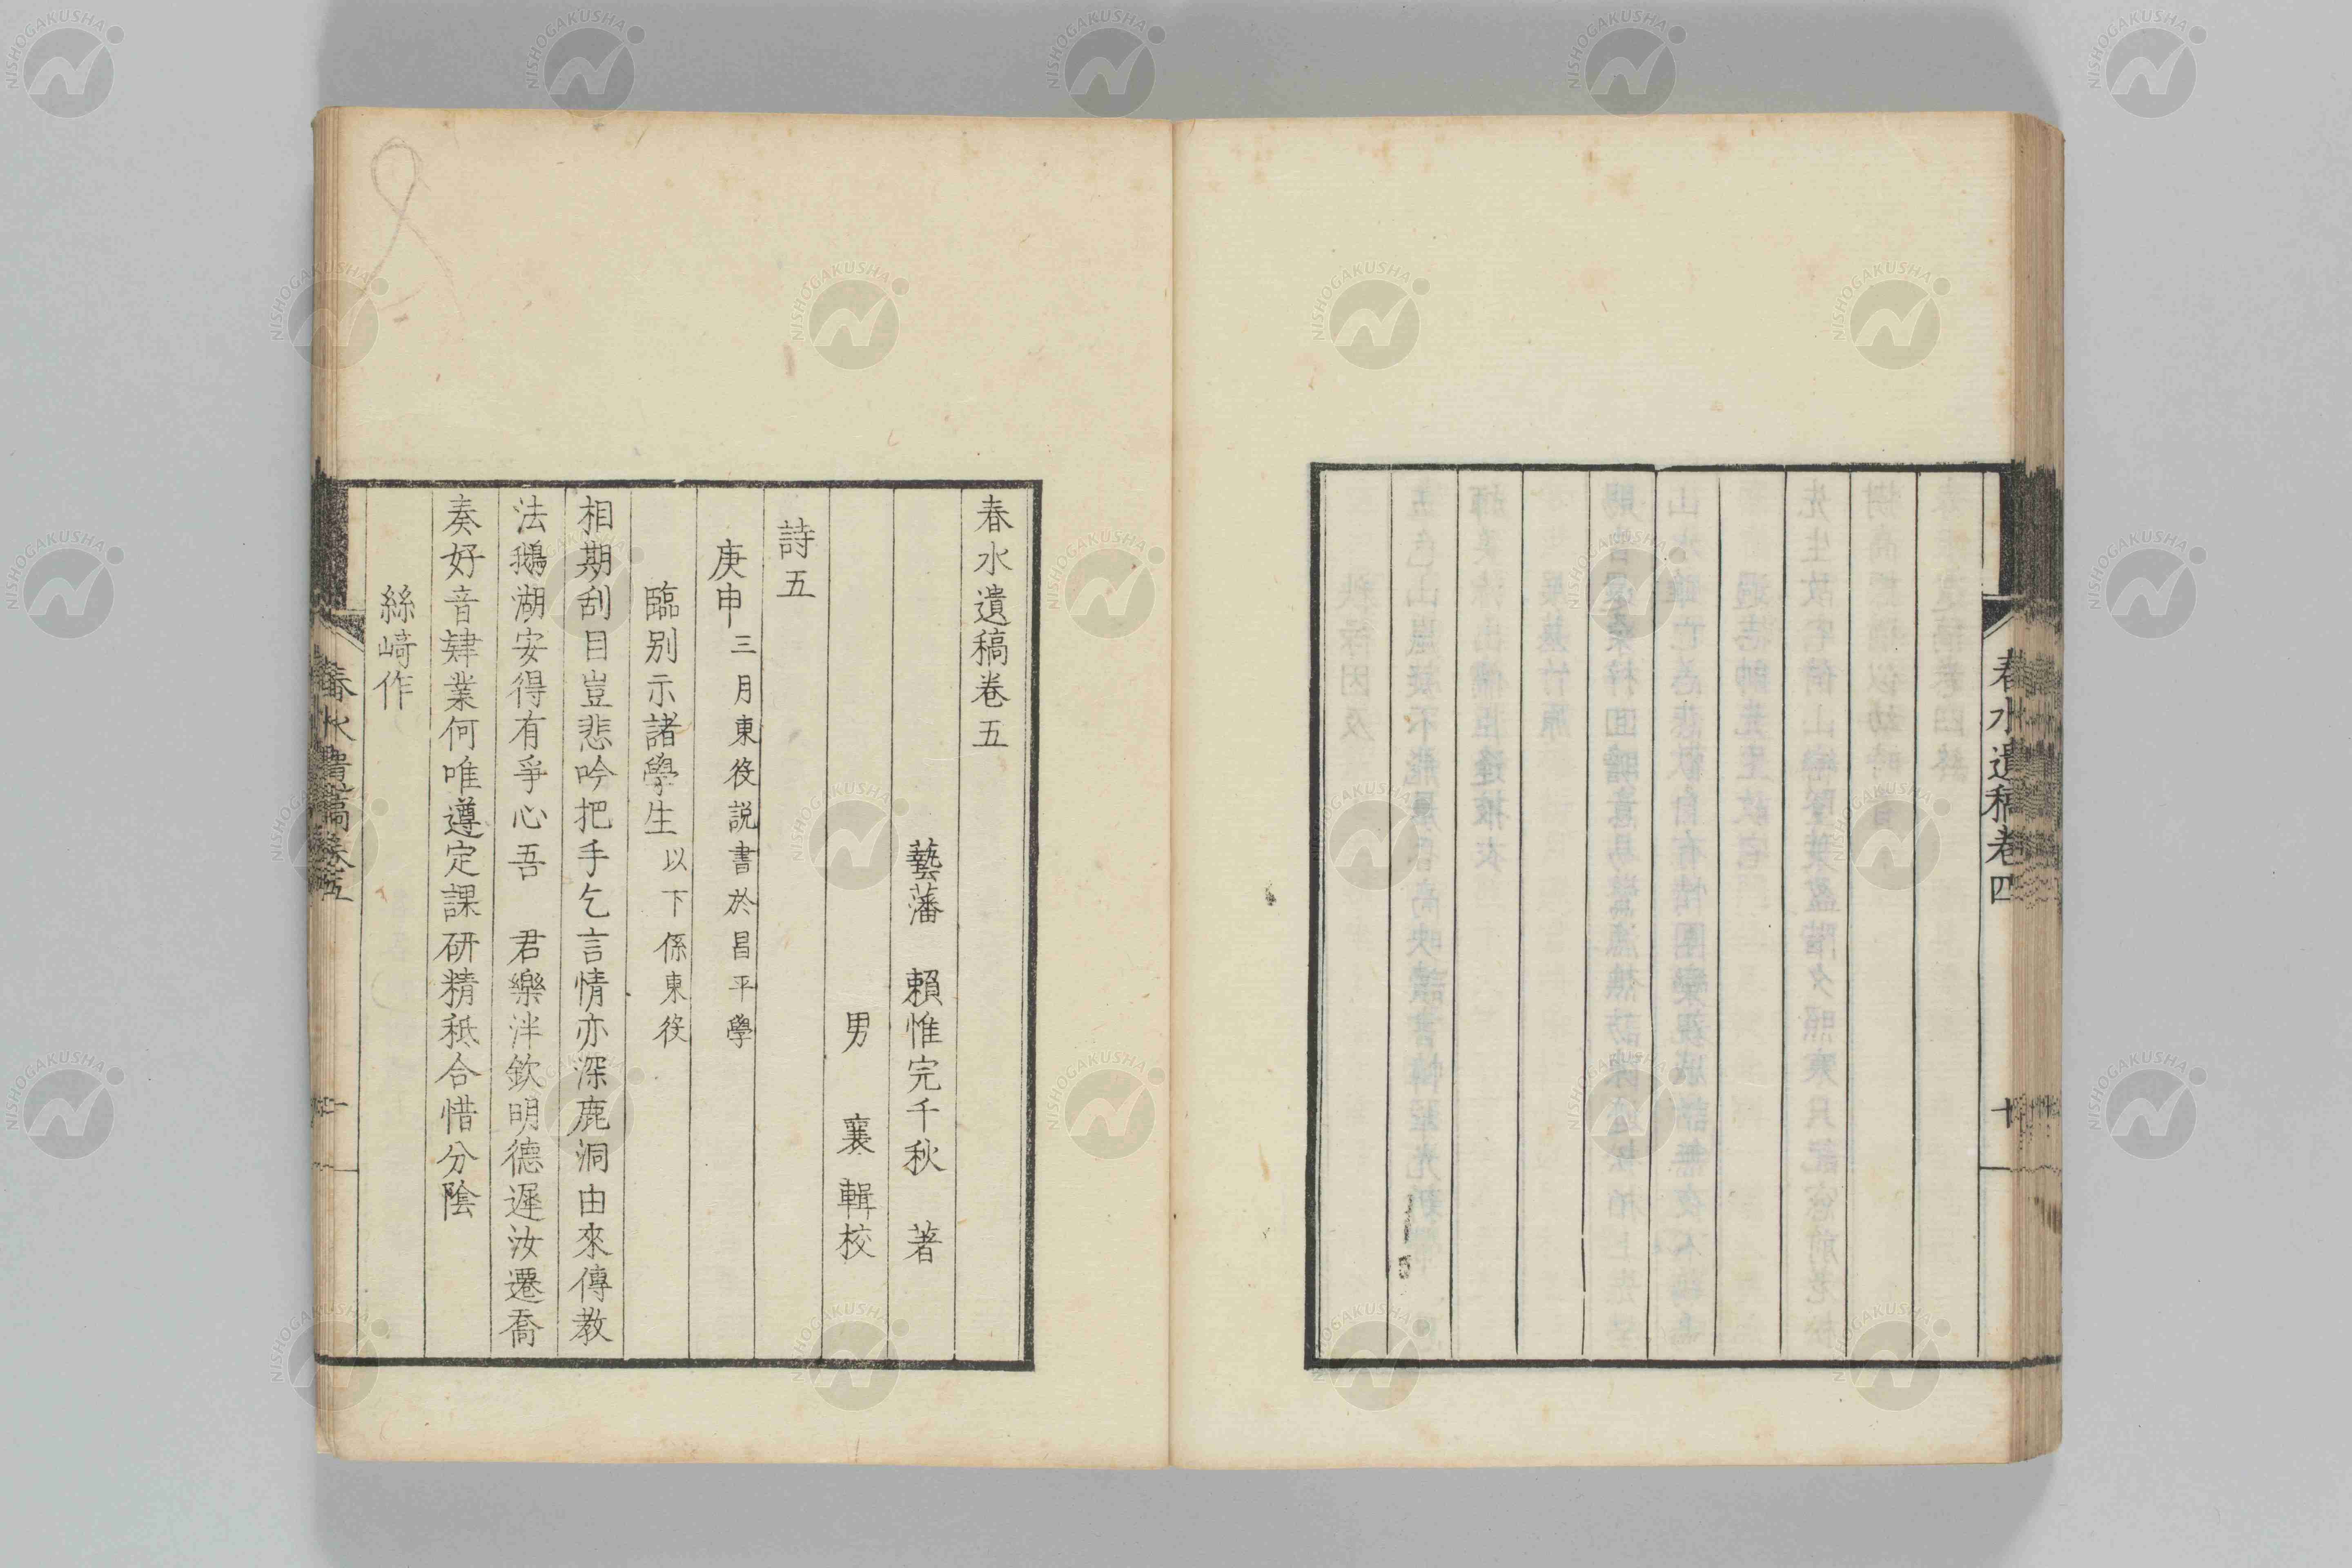 春水遺稿卷四
十
春水遺稿卷五
藝藩　賴惟完千秋　著
男　襄　輯校
詩五
庚申三月東役説書於昌平學
臨別示諸學生以下係東役
相期刮目豈悲吟把手乞言情亦深鹿洞由來傳教
法鵝湖安得有爭心吾　君樂泮欽明德遲汝遷喬
奏好音肄業何唯遵定課研精秪合惜分陰
絲﨑作
春水遺稿卷五
NISHOGAKUSHA